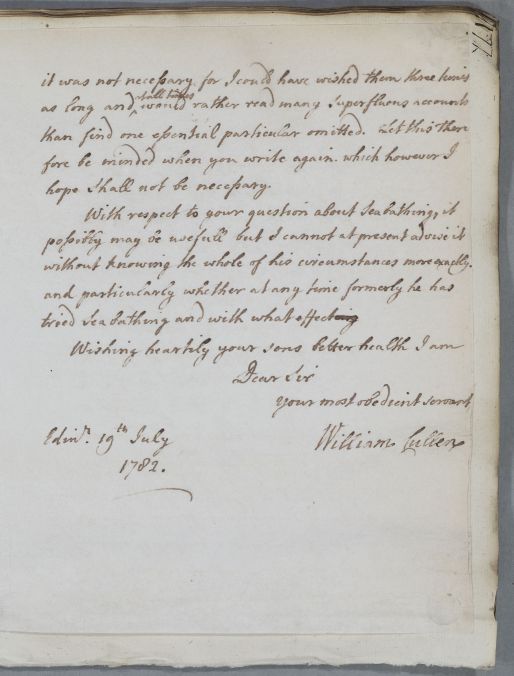 it was not necessary for I could have wished them three times
as long and, would rather read many superfluous accounts
than find one essential particular omitted. Let this there
fore be minded when you write again. which however I
hope shall not be necessary.
With respect to your question about Seabathing, it
possibly may be usefull but I cannot at present advise it
without knowing the whole of his circumstances more exactly.
and particularly whether at any time formerly he has
tried Seabathing and with what effect
Wishing heartily your sons better health I am
Dear Sir
your most obedient servant
William Cullen
Edinr. 19th July
1782.